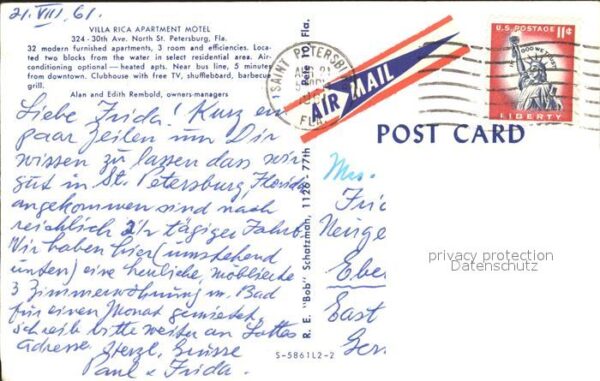 21. VIII. 61.
VILLA RICA APARTMENT MOTEL
324 - 30th Ave. North St. Petersburg, Fla.
32 modern furnished apartments, 3 room and efficiencies. Loca-
ted two blocks from the water in select residential area. Air-
conditioning optional — heated apts. Near bus line, 5 minutes
from downtown. Clubhouse with free TV, shuffleboard, barbecue
grill.
Alan and Edith Rembold, owners-managers
Liebe Frida! Kurz ein
paar Zeilen um Dir
wissen zu lassen dass wir
gut in St. Petersburg, Florida
angekommen sind nach
reichlich 2½ tägiger Fahrt.
Wir haben hier (umstehend
unten) eine herrliche, möblierte
3 Zimmerwohnung m. Bad
für einen Monat gemietet.
Schreib bitte weiter an
Adresse. Herzl. Grüsse
Paul u Frida.
R. E. "Bob" Schatzman, 1126 - 77th Pete 10 Fla.
S-5861L2-2
SAINT PETERSBURG
FLA.
AIR MAIL
U.S. POSTAGE 11¢
IN GOD WE TRUST
LIBERTY
POST CARD
Mrs.
Frid
Neuge
Eber
East
Ger
privacy protection
Datenschutz